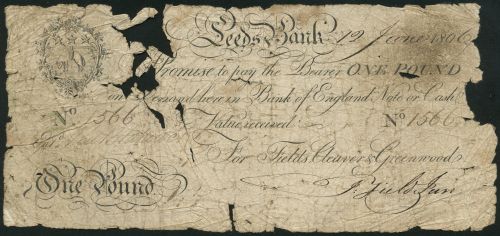 Leeds Bank 12 June 1806
Promise to pay the Bearer ONE POUND
on Demand here in Bank of England Note or Cash
No 1566 Value received No 1566
For Fields, Cleaver & Greenwood
One Pound J. Field Jun